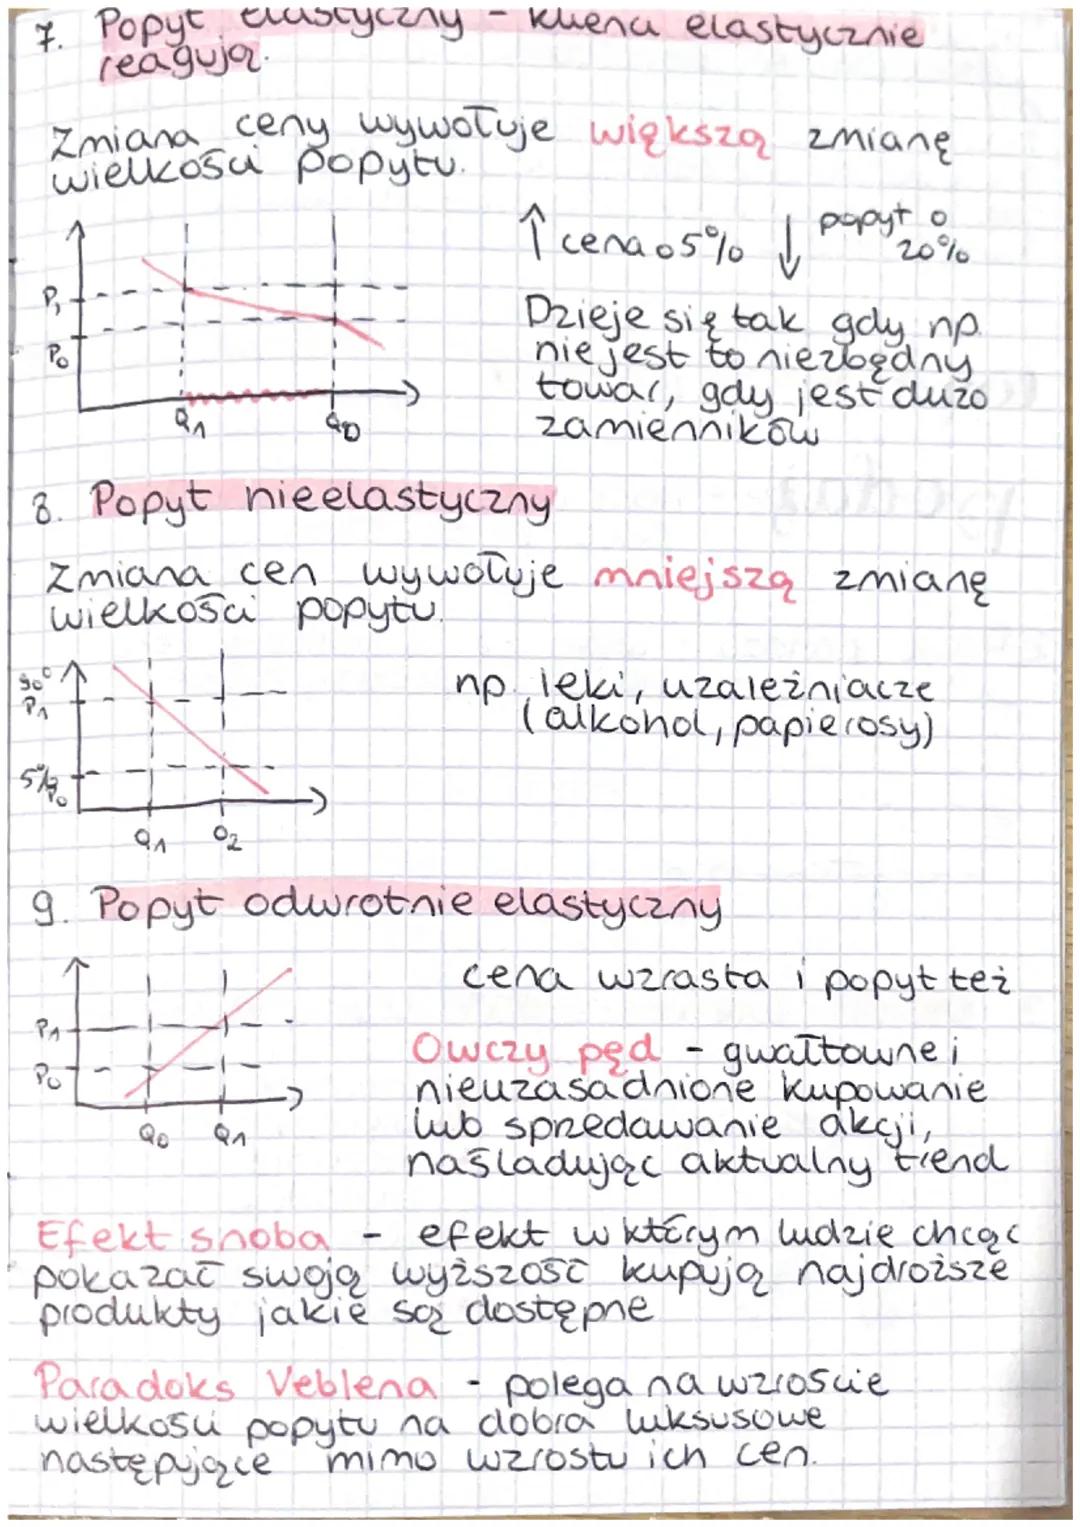 7. Popyt elastyczny - klienci elastycznie
reagują.
Zmiana ceny wywołuje większą zmianę
wielkości popytu.
↑ cena o 5% ↓ popyt o
20%
P1
P0
Q1 Q0
Dzieje się tak gdy np.
nie jest to niezbędny
towar, gdy jest dużo
zamienników
8. Popyt nieelastyczny
Zmiana cen wywołuje mniejszą zmianę
wielkości popytu.
P1
5%
P0
Q1 Q2
np. leki, uzależniacze
(alkohol, papierosy)
9. Popyt odwrotnie elastyczny
P1
P0
Q0 Q1
cena wzrasta i popyt też
Owczy pęd - gwałtowne i
nieuzasadnione kupowanie
lub sprzedawanie akcji,
naśladując aktualny trend
Efekt snoba - efekt w którym ludzie chcąc
pokazać swoją wyższość kupują najdroższe
produkty jakie są dostępne
Paradoks Veblena - polega na wzroście
wielkości popytu na dobra luksusowe
następujące mimo wzrostu ich cen.